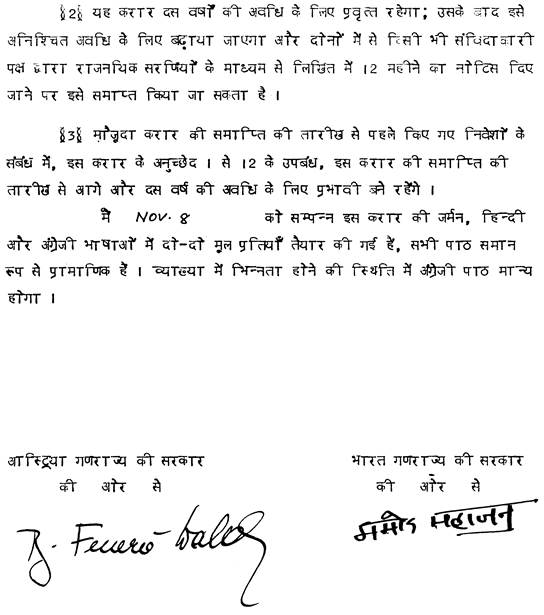 §2§ यह करार दस वर्षों की अवधि के लिए प्रवृत्त रहेगा; उसके बाद इसे
अनिश्चित अवधि के लिए बढ़ाया जाएगा और दोनों में से किसी भी संविदाकारी
पक्ष द्वारा राजनयिक सरणियों के माध्यम से लिखित में 12 महीने का नोटिस दिए
जाने पर इसे समाप्त किया जा सकता है ।
§3§ मौजूदा करार की समाप्ति की तारीख से पहले किए गए निवेशों के
संबंध में, इस करार के अनुच्छेद 1 से 12 के उपबंध, इस करार की समाप्ति की
तारीख से आगे और दस वर्ष की अवधि के लिए प्रभावी बने रहेंगे ।
में NOV. 8 को सम्पन्न इस करार की जर्मन, हिन्दी
और अंग्रेजी भाषाओं में दो-दो मूल प्रतियाँ तैयार की गई हैं, सभी पाठ समान
रूप से प्रामाणिक हैं । व्याख्या में भिन्नता होने की स्थिति में अंग्रेजी पाठ मान्य
होगा ।
आस्ट्रिया गणराज्य की सरकार
की ओर से
भारत गणराज्य की सरकार
की ओर से
महाजन